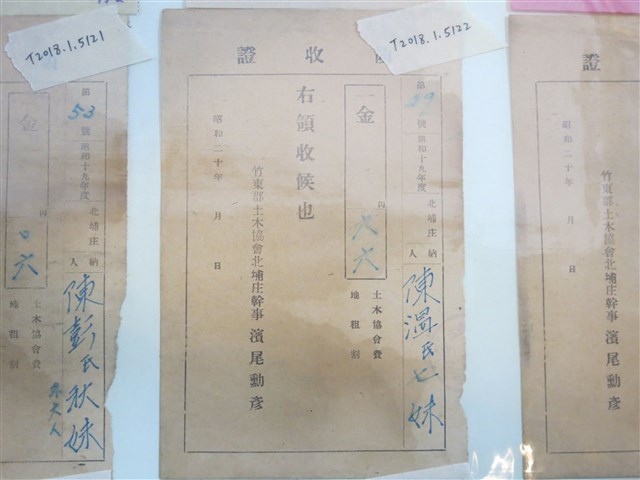 T2018.1.5121
第53號 昭和十九年度 北埔庄納人 陳彭氏秋妹
冬大人
土木協會費
地租割
金 円 〇六
T2018.1.5122
收證
第 號 昭和十九年度 北埔庄納人 陳溫氏七妹
土木協會費
地租割
一金 円 六六
右領收候也
竹東郡土木協會北埔庄幹事 濱尾勳彥
昭和二十年 月 日
證
竹東郡土木協會北埔庄幹事 濱尾勳彥
昭和二十年 月 日